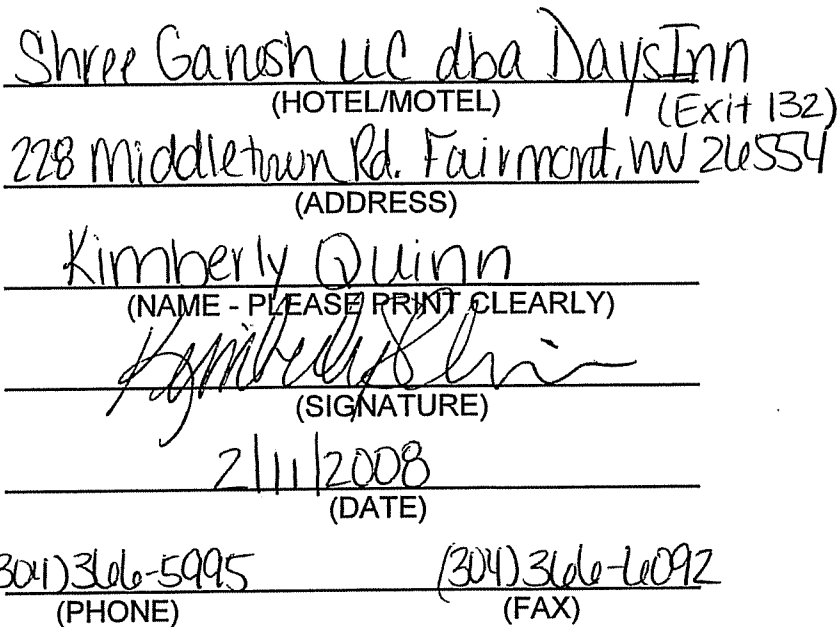 Shree Ganesh LLC dba Days Inn
(HOTEL/MOTEL) (Exit 132)
228 Middletown Rd. Fairmont, WV 26554
(ADDRESS)
Kimberly Quinn
(NAME - PLEASE PRINT CLEARLY)
(SIGNATURE)
2/11/2008
(DATE)
304) 366-5995 (304) 366-6092
(PHONE) (FAX)